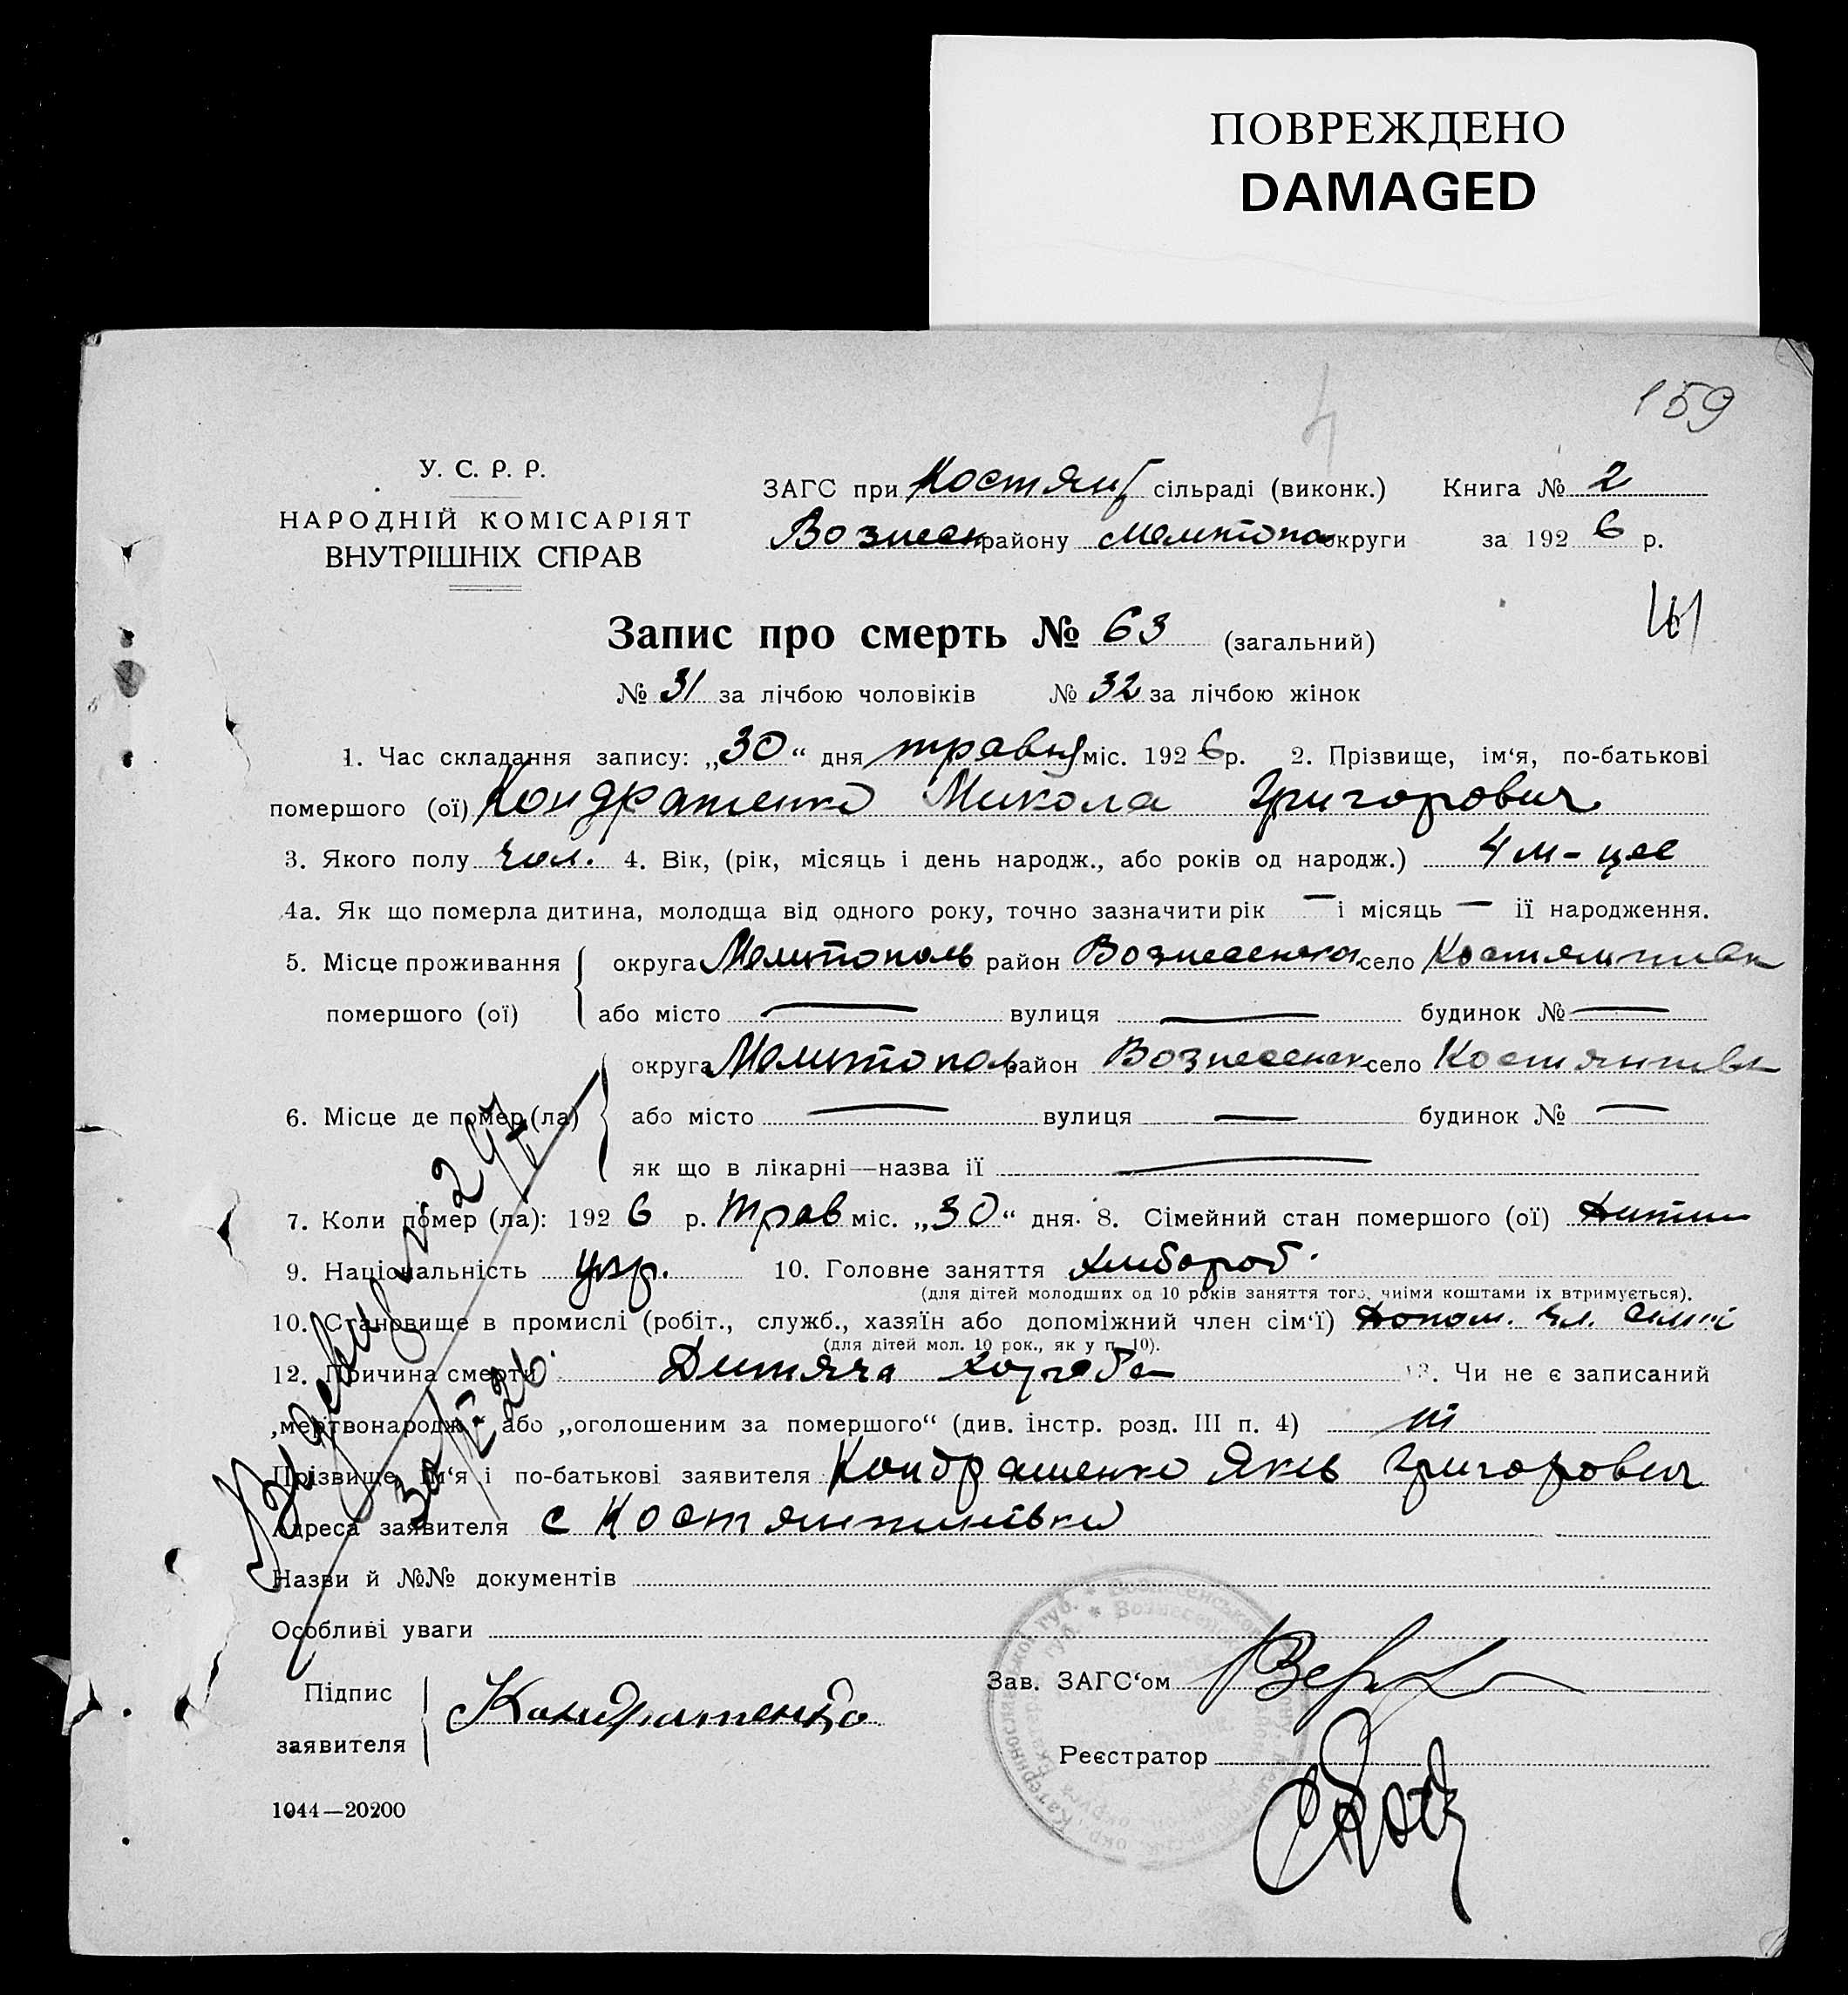 ПОВРЕЖДЕНО
DAMAGED
159
У. С. Р. Р.
НАРОДНІЙ КОМІСАРІЯТ
ВНУТРІШНІХ СПРАВ
ЗАГС при Костян сільраді (виконк.) Книга № 2
Вознесен району Мелітопол округи за 1926 р.
Запис про смерть № 63 (загальний)
№ 31 за лічбою чоловіків № 32 за лічбою жінок
1. Час складання запису: „30“ дня травня міс. 1926 р. 2. Прізвище, ім‘я, по-батькові
помершого (ої) Кондратенко Микола Григорович
3. Якого полу чол. 4. Вік, (рік, місяць і день народж., або років од народж.) 4 м-цяе
4а. Як що померла дитина, молодща від одного року, точно зазначити рік — і місяць — ії народження.
5. Місце проживання округа Мелитополь район Вознесенск село Костянтинівк
помершого (ої) або місто — вулиця — будинок № —
округа Мелитопол район Вознесенск село Костянтинівк
6. Місце де помер (ла) або місто — вулиця — будинок № —
як що в лікарні—назва ії —
7. Коли помер (ла): 1926 р. Трав міс. „30“ дня. 8. Сімейний стан помершого (ої) Дитин
9. Національність укр. 10. Головне заняття Хлибороб.
(для дітей молодших од 10 років заняття того, чиїми коштами їх втримується).
10. Становище в промислі (робіт., служб., хазяїн або допоміжний член сім‘ї) Допом. чл. сімї
(для дітей мол. 10 рок., як у п. 10).
12. Причина смерти Дитяча хороба 13. Чи не є записаний
„мертвонародж“ або „оголошеним за помершого“ (див. інстр. розд. III п. 4) ні
Прізвище, ім‘я і по-батькові заявителя Кондратенко Яків Григорович
Адреса заявителя с Костянтинівки
Назви й №№ документів
Особливі уваги
Підпис
заявителя Кондратенко
Зав. ЗАГС‘ом
Реєстратор
1044—20200